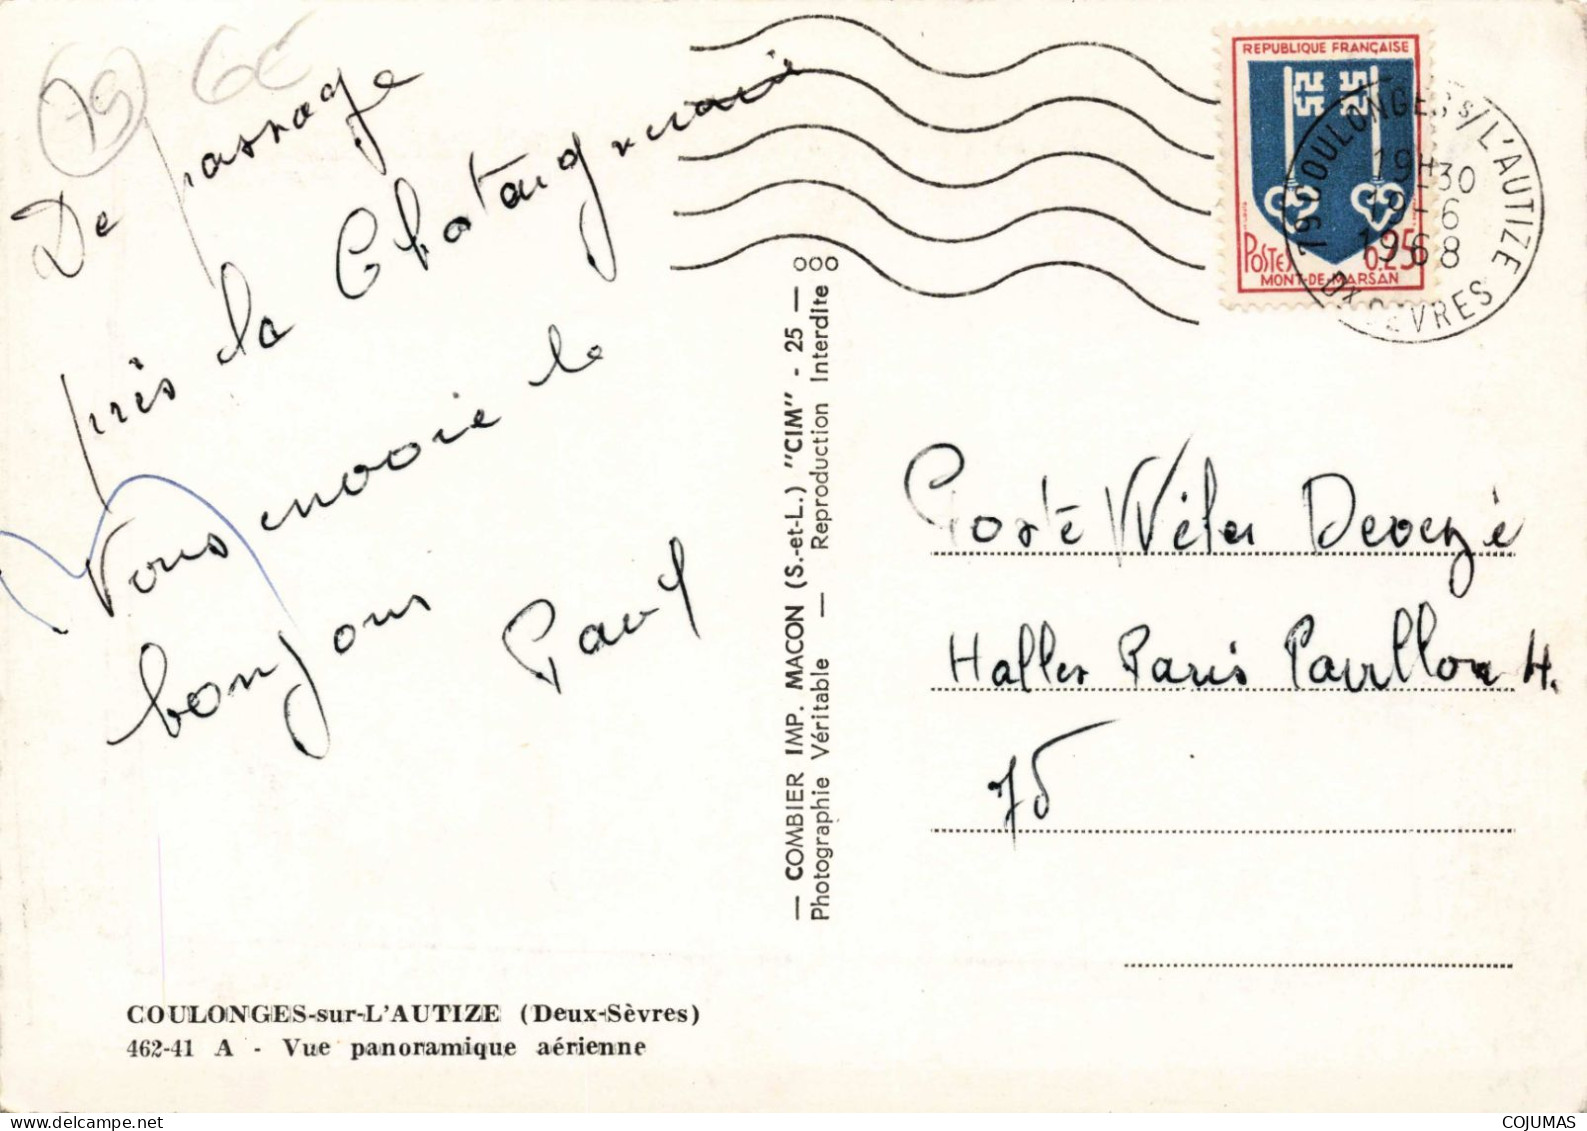 79 6€
De passage
près la Chataigneraie
Vous envoie le
bonjour
Paul
COULONGES-sur-L'AUTIZE (Deux-Sèvres)
462-41 A - Vue panoramique aérienne
— COMBIER IMP. MACON (S.-et-L.) "CIM" - 25 —
Photographie Véritable — Reproduction Interdite
REPUBLIQUE FRANÇAISE
POSTES 0.25
MONT-DE-MARSAN
79 COULONGES S/ L'AUTIZE
19H30
19-6
1968
DX SEVRES
Poste
Halles Paris Pavillon H.
75
COJUMAS